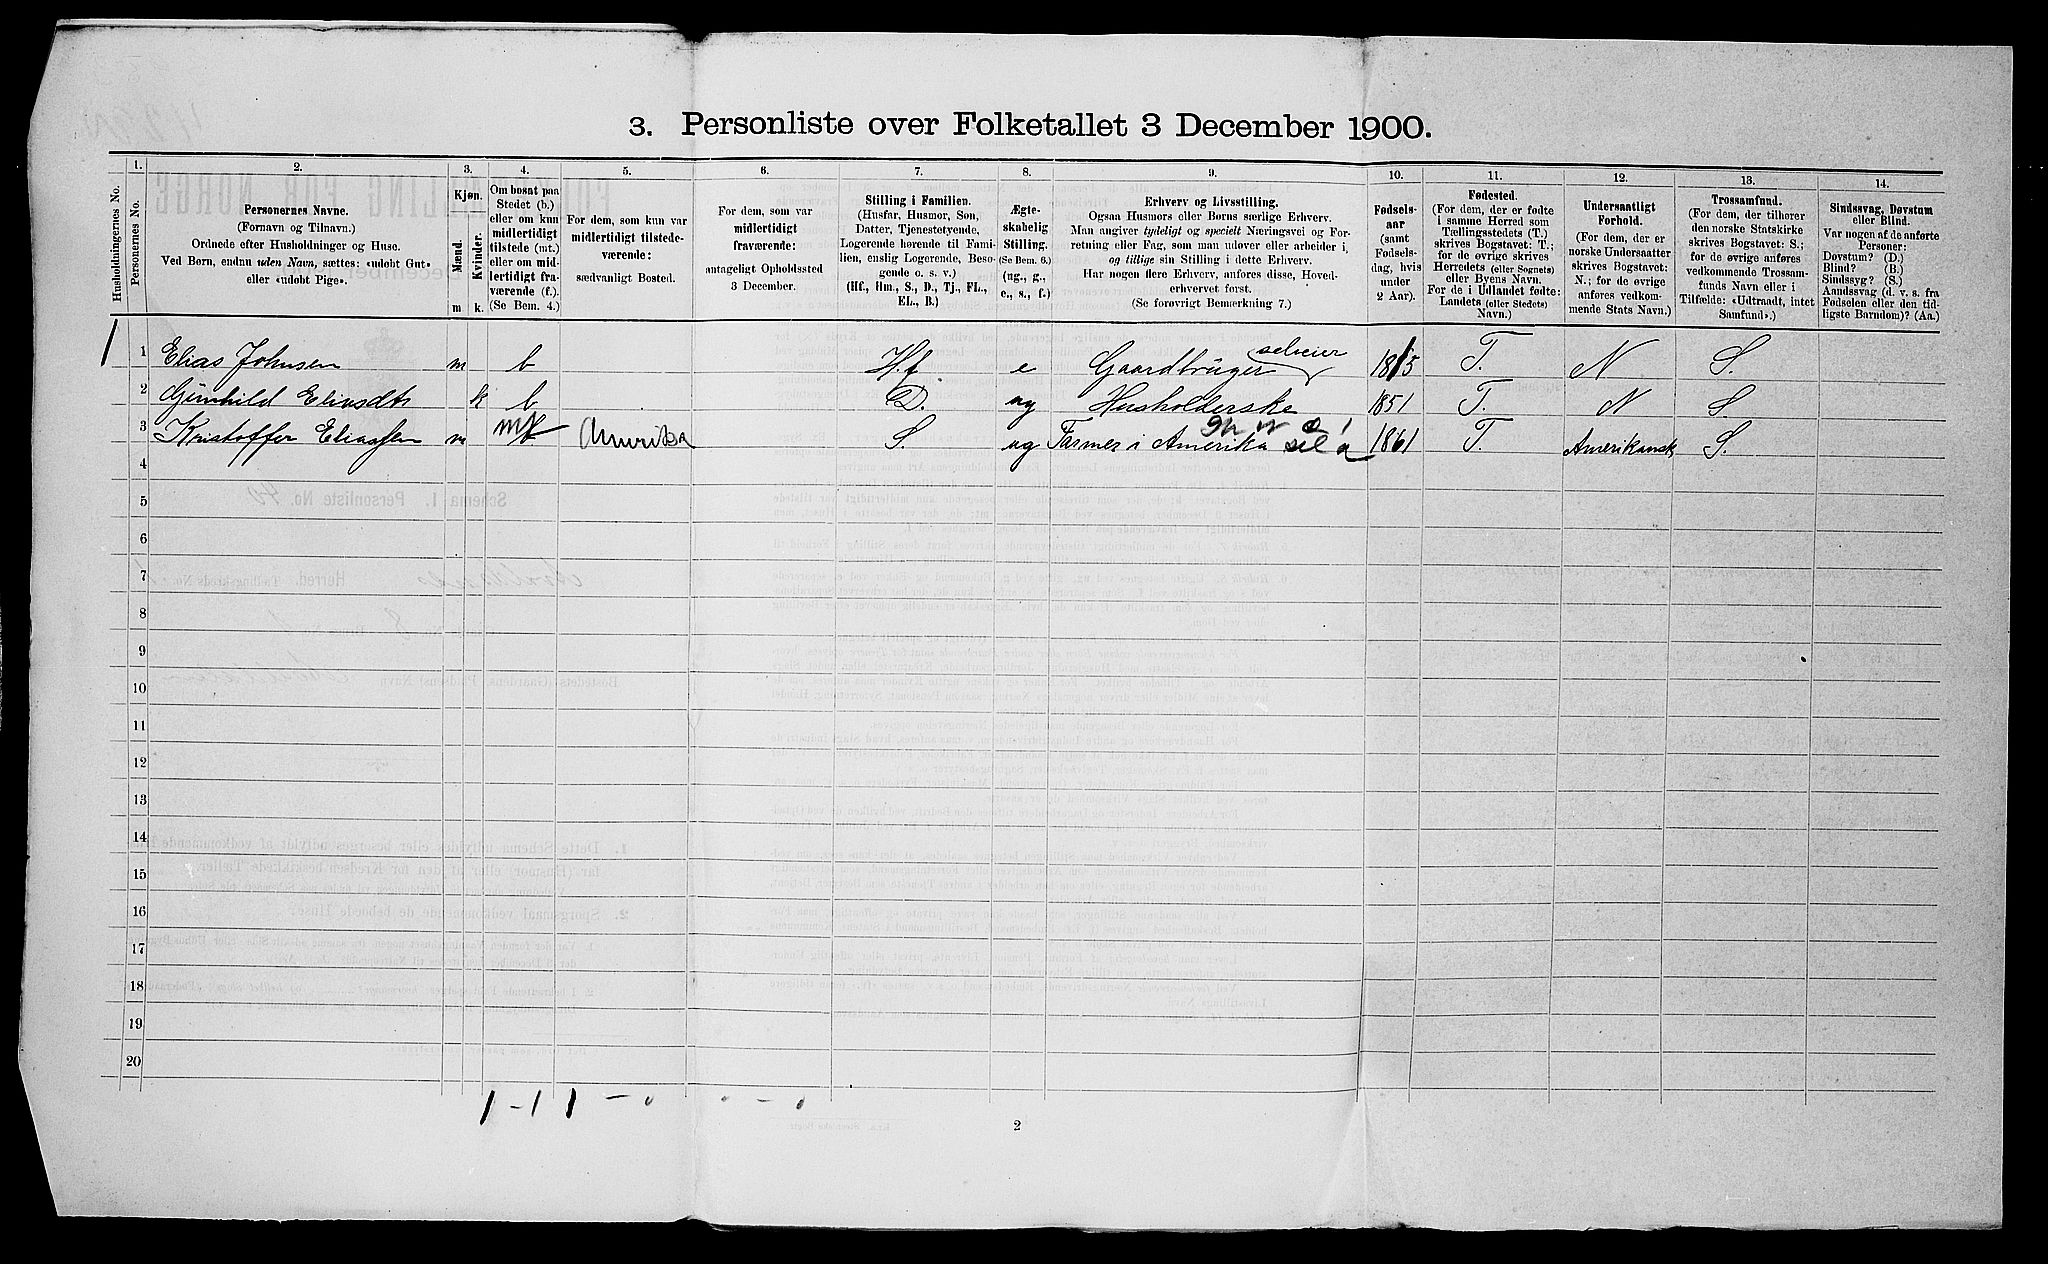 3. Personliste over Folketallet 3 December 1900.
1. 2. 3. 4. 5. 6. 7. 8. 9. 10. 11. 12. 13. 14.
Husholdningernes No.
Personernes No.
Personernes Navne.
(Fornavn og Tilnavn.)
Ordnede efter Husholdninger og Huse.
Ved Børn, endnu uden Navn, sættes: «udøbt Gut»
eller «udøbt Pige».
Kjøn.
Mænd.
Kvinder.
m k.
Om bosat paa
Stedet (b.)
eller om kun
midlertidigt
tilstede (mt.)
eller om mid-
lertidigt fra-
værende (f.).
(Se Bem. 4.)
For dem, som kun var
midlertidigt tilstede-
værende:
sædvanligt Bosted.
For dem, som var
midlertidigt
fraværende:
antageligt Opholdssted
3 December.
Stilling i Familien.
(Husfar, Husmor, Søn,
Datter, Tjenestetyende,
Logerende hørende til Fami-
lien, enslig Logerende, Besø-
gende o. s. v.)
(Hf., Hm., S., D., Tj., FL.,
EL., B.)
Ægte-
skabelig
Stilling.
(Se Bem. 6.)
(ug., g.,
e., s., f.)
Erhverv og Livsstilling.
Ogsaa Husmors eller Børns særlige Erhverv.
Man angiver tydeligt og specielt Næringsvei og For-
retning eller Fag, som man udøver eller arbeider i,
og tillige sin Stilling i dette Erhverv.
Har nogen flere Erhverv, anføres disse, Hoved-
erhvervet først.
(Se forøvrigt Bemerkning 7.)
Fødsels-
aar
(samt
Fødsels-
dag, hvis
under
2 Aar).
Fødested.
(For dem, der er fødte
i samme Herred som
Tællingsstedets (T.)
skrives Bogstavet: T.;
for de øvrige skrives
Herredets (eller Sognets)
eller Byens Navn.
For de i Udlandet fødte:
Landets (eller Stedets)
Navn.)
Undersaatligt
Forhold.
(For dem, der er
norske Undersaatter
skrives Bogstavet:
N.; for de øvrige
anføres vedkom-
mende Stats Navn.)
Trossamfund.
(For dem, der tilhører
den norske Statskirke
skrives Bogstavet: S.;
for de øvrige anføres
vedkommende Trossam-
funds Navn eller i
Tilfælde: «Udtraadt, intet
Samfund».)
Sindssvag, Døvstum
eller Blind.
Var nogen af de anførte
Personer:
Døvstum? (D.)
Blind? (B.)
Sindssyg? (S.)
Aandssvag (d. v. s. fra
Fødselen eller den tid-
ligste Barndom)? (Aa.)
1 1 Elias Johnsen m b H.f. e Gaardbruger selveier 1815 T. N S.
2 Gunhild Eliasdtr k b D. ug Husholderske 1851 T. N S.
3 Kristoffer Eliassen m mt Amerika S. ug Farmer i Amerika 1861 T. Amerikansk S.
4
5
6
7
8
9
10
11
12
13
14
15
16
17
18
19
20
1 - 1 1 - 0 0 - 0
2